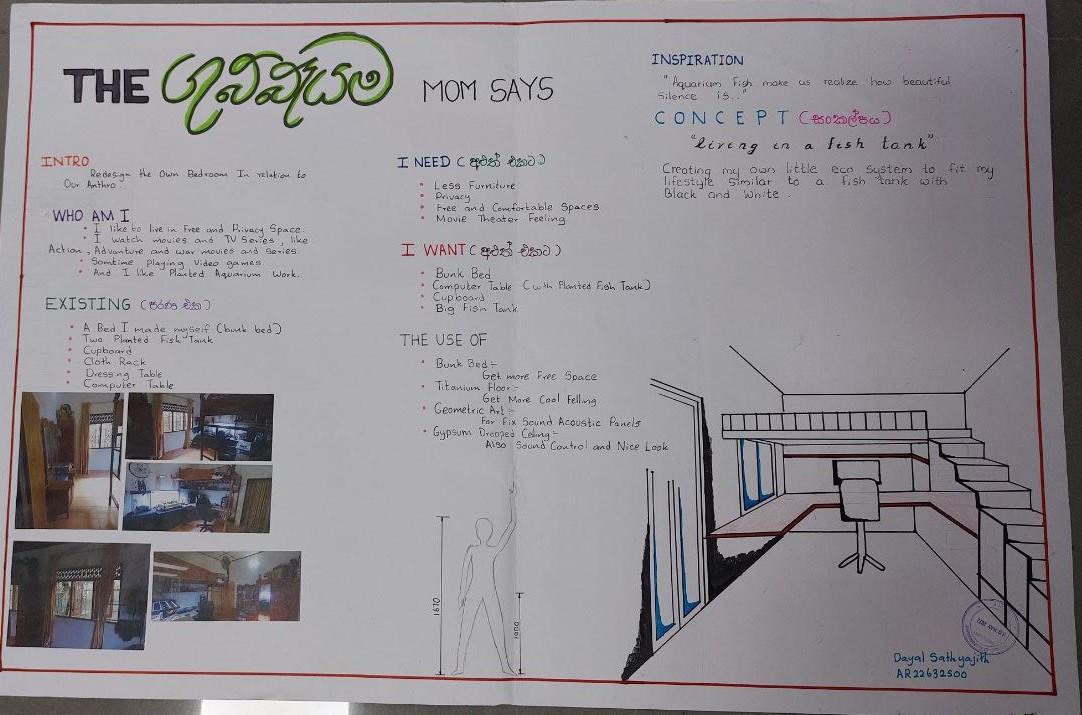 THE ගුබ්බෑයම MOM SAYS
INTRO
Redesign the Own Bedroom In relation to
Our Anthro.
WHO AM I
• I like to live in Free and Privacy Space.
• I watch movies and TV Series, like
Action, Advanture and war movies and series.
• Somtime playing Video games
• And I like Planted Aquarium Work.
EXISTING (පරණ එක)
• A Bed I made myself (bunk bed)
• Two Planted Fish Tank
• Cupboard
• Cloth Rack
• Dressing Table
• Computer Table
I NEED (අළුත් එකට)
• Less Furniture
• Privacy
• Free and Comfortable Spaces
• Movie Theater Feeling
I WANT (අළුත් එකට)
• Bunk Bed
• Computer Table (with Planted Fish Tank)
• Cupboard
• Big Fish Tank
THE USE OF
• Bunk Bed :-
Get more Free Space
• Titanium Floor :-
Get More Cool Felling
• Geometric Art :-
For Fix Sound Acoustic Panels
• Gypsum Dropped Celing :-
Also Sound Control and Nice Look
1670
1000
INSPIRATION
"Aquarium Fish make us realize how beautiful
silence is.."
CONCEPT (සංකල්පය)
"living in a fish tank"
Creating my own little eco system to fit my
lifestyle similar to a fish tank with
Black and White.
Dayal Sathyajith
AR22632500